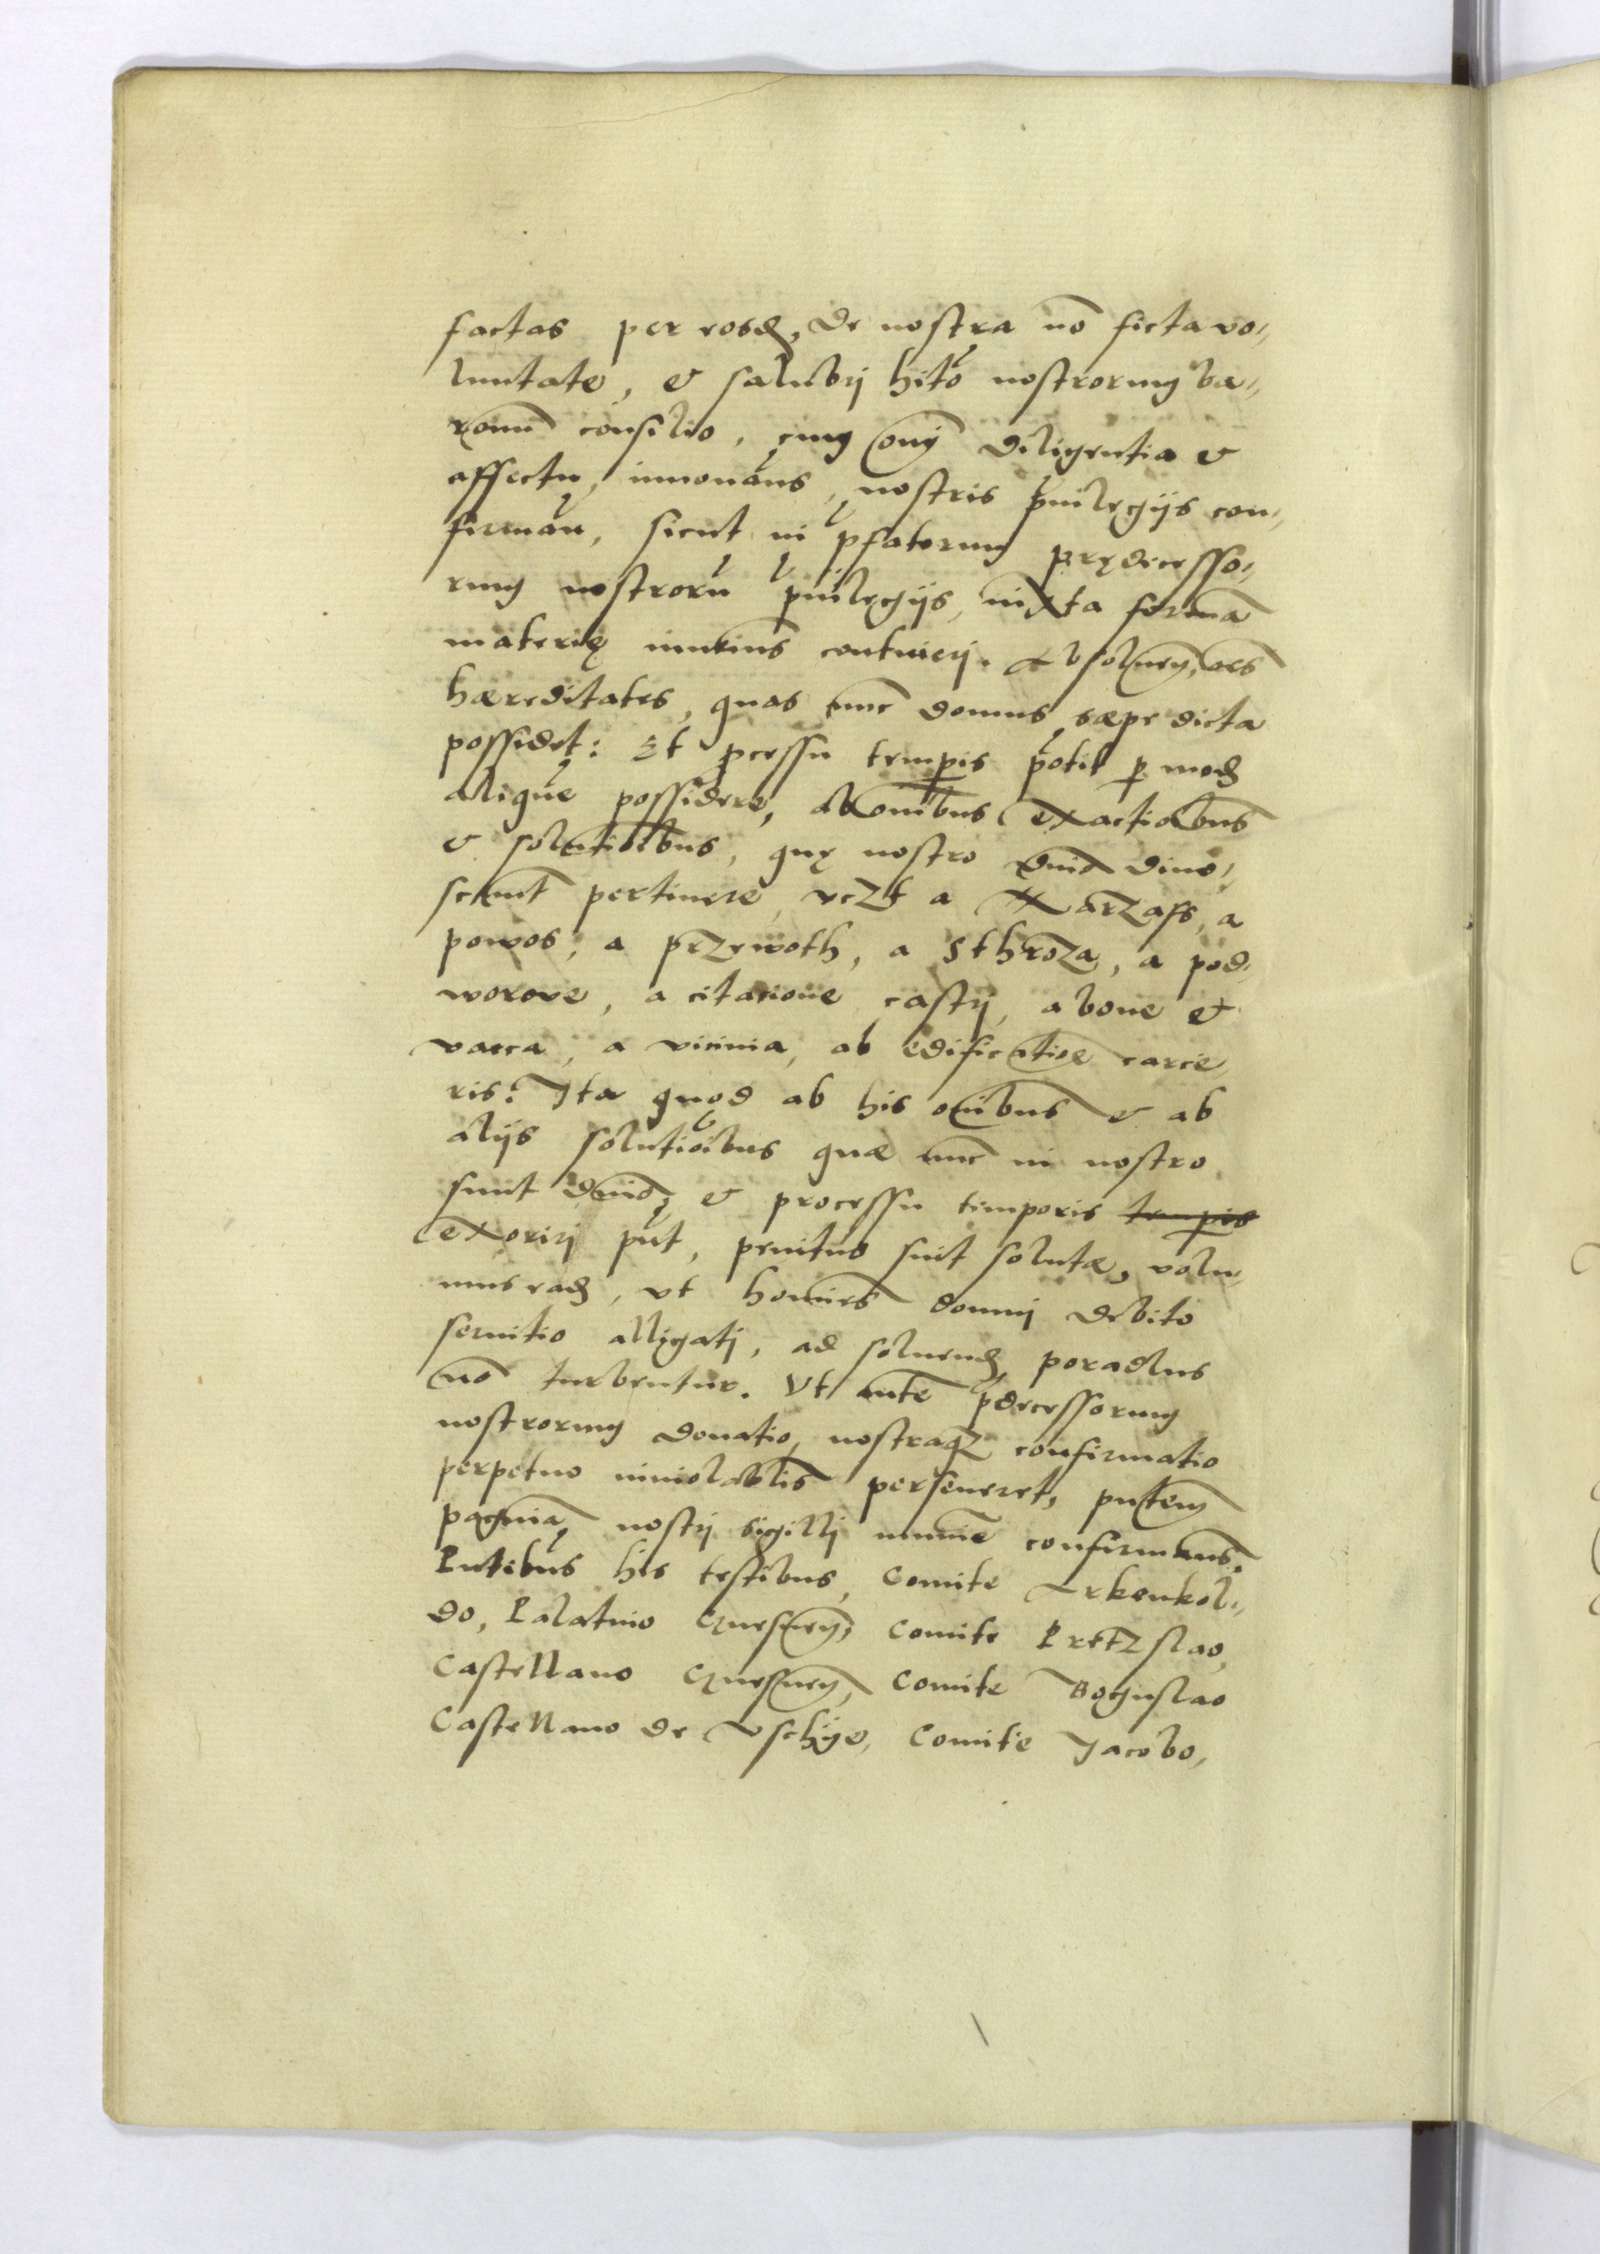 factas per eosd, de nostra nō ficta vo-
luntate, & salubrj hito nostrorum ba-
ronū consilio, cum omj diligentia &
affectu, innouans, nostris priuilegijs con-
firman, sicut in pfatorum prędecesso-
rum nostrorū priuilegijs, iuxta formā
materię inuenim9 contineri. Absoluen, oēs
hæreditates, quas nunc domus sæpe dicta
possidet: Et pcessu tempis potit p mod
aliquē possidere, ab omibus exactiobus
& solutioibus, quę nostro dnio dino-
scunt pertinere, vczt a Narzass, a
powos, a przewoth, a Sthroza, a pod-
worove, a citatione castrj, a bove &
vacca, a vicinia, ab edificatiōe carce
ris: Ita quod ab his oibus & ab
alijs solutioibus quæ nunc in nostro
sunt dnio, & processu temporis tempis
exoriri pnt, penitus sint solutæ, volu-
mus ead, vt homines domuj debito
seruitio alligatj, ad soluend poradlus
nō turbentur. Vt autē pdecessorum
nostrorum donatio, nostraqz confirmatio
perpetuo inuiolabilis perseueret, pntem
paginā nostrj sigillj munimē confirmam9.
Pntibus his testibus, Comite Arkenbol-
do, Palatino Gnesnen, Comite Pretzslao,
Castellano Gnesnen, Comite Boguslao
Castellano de Vschye, Comite Jacobo,